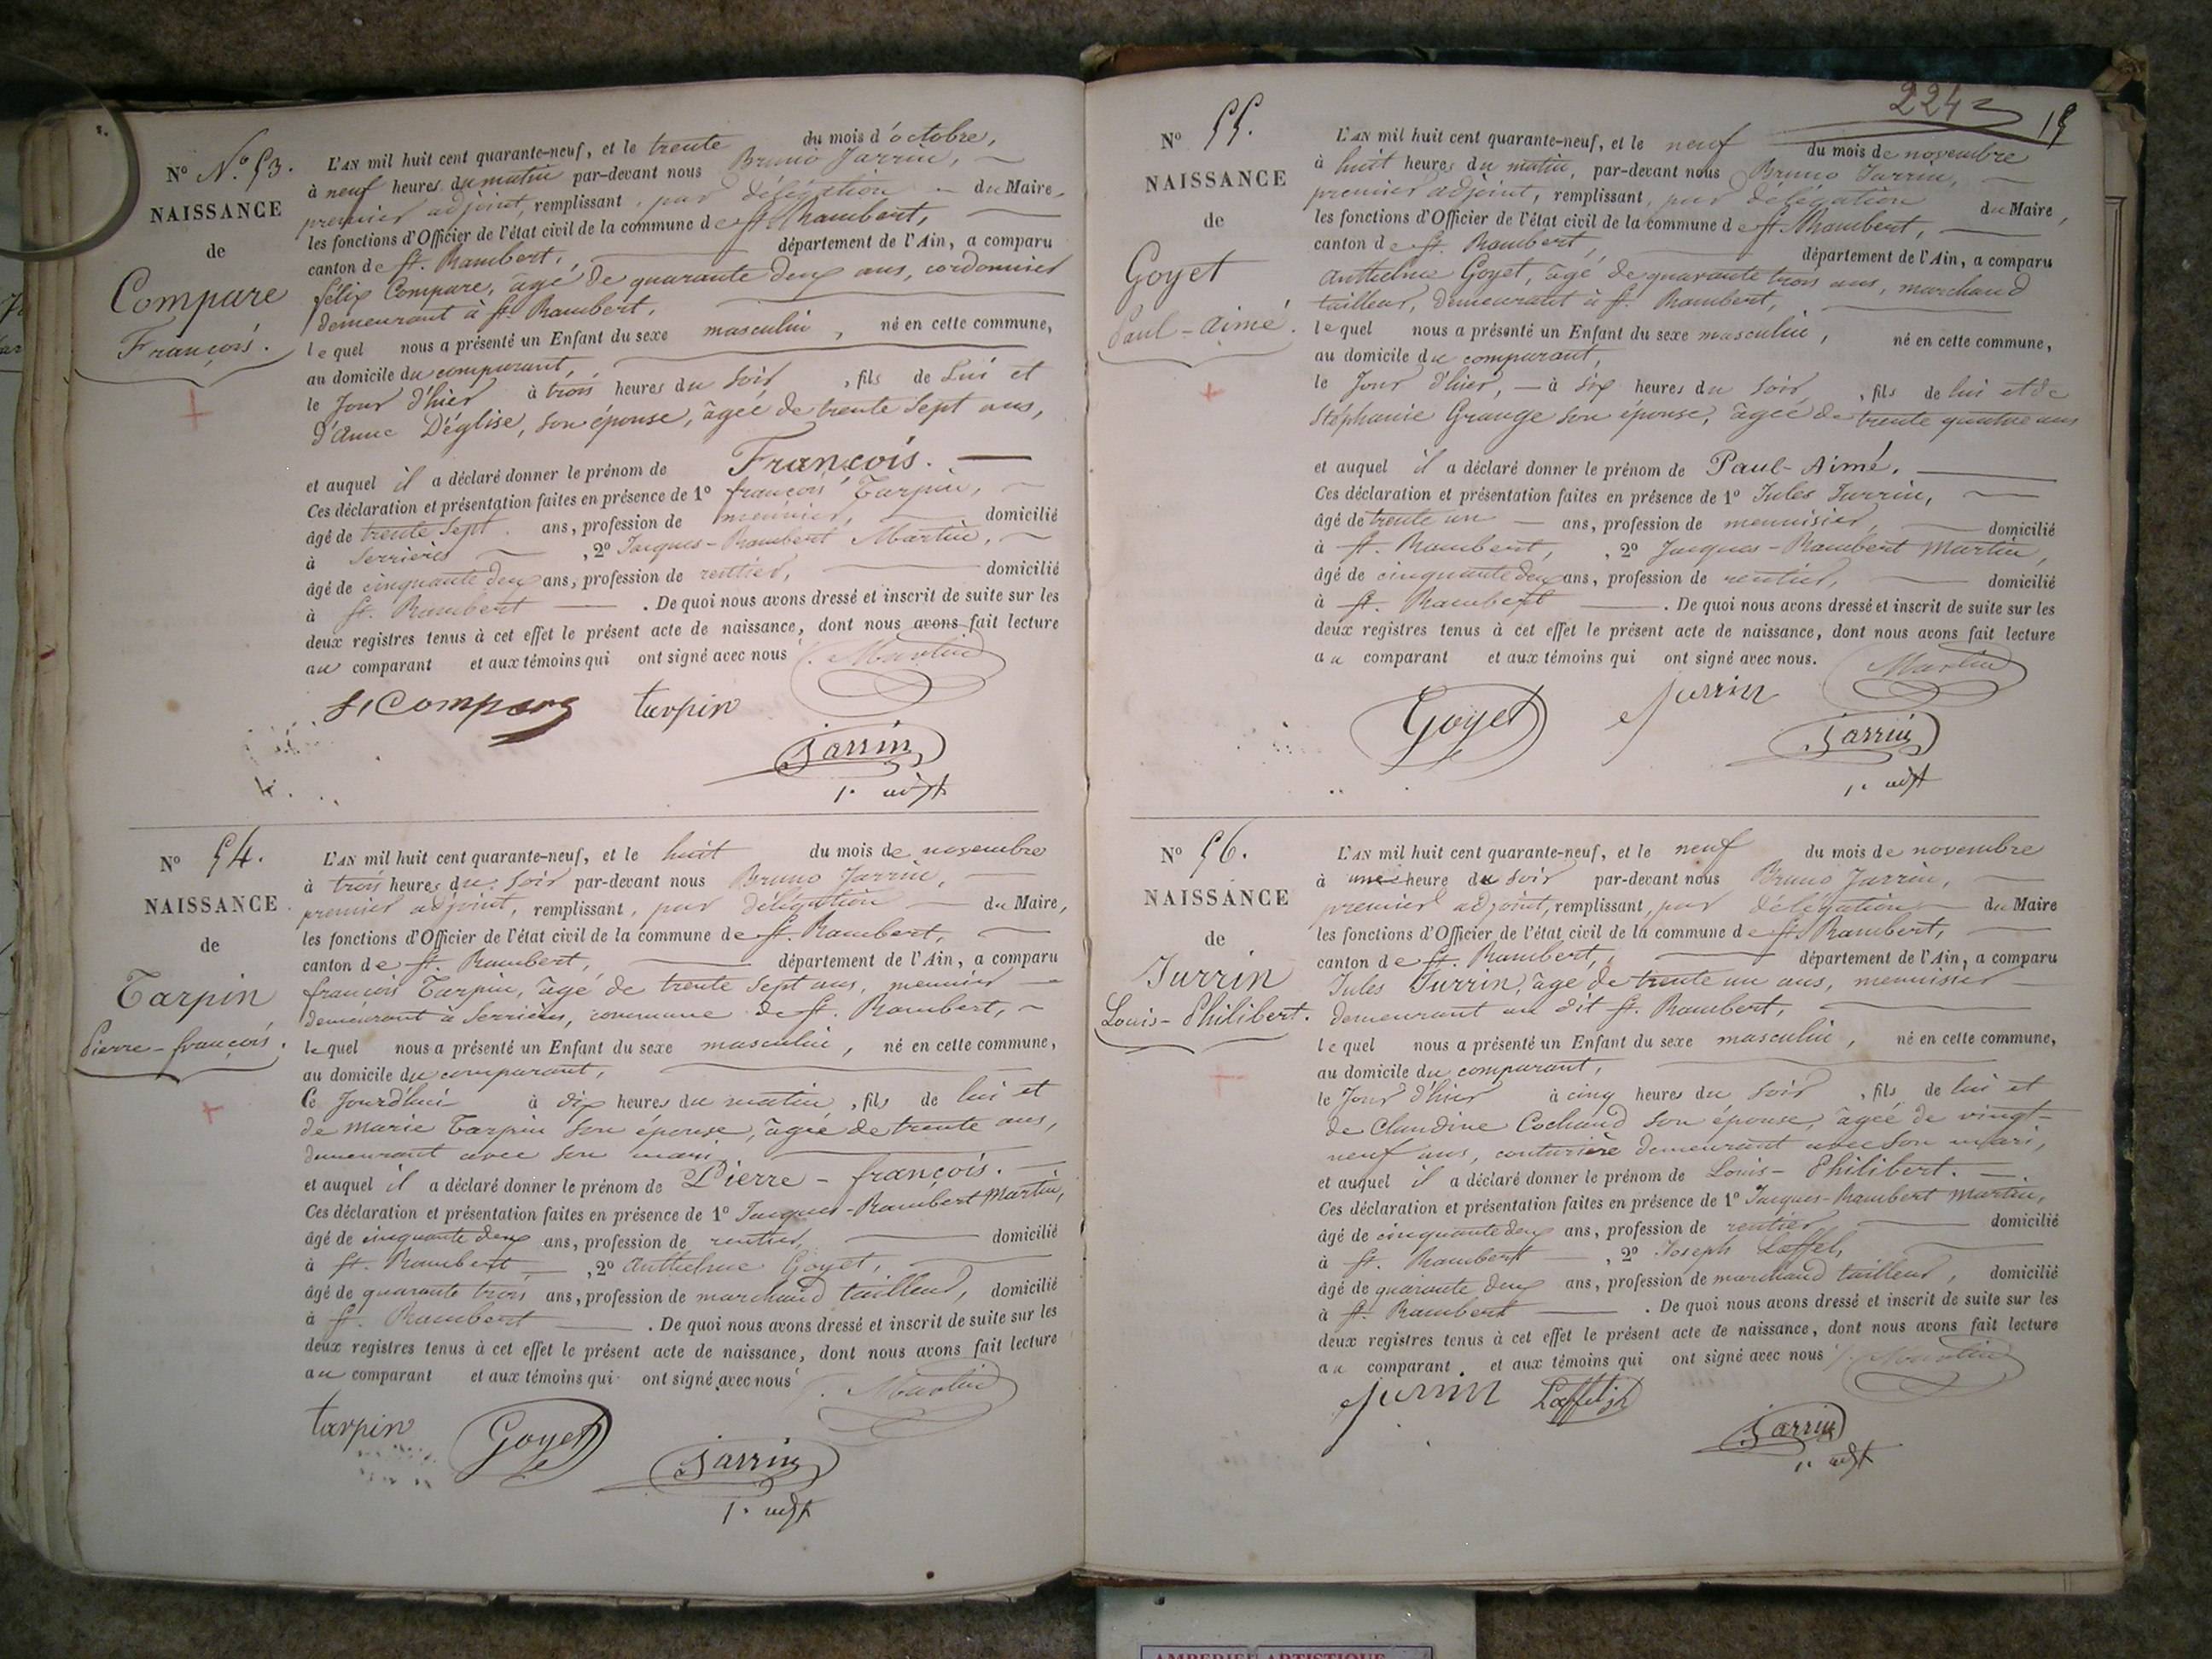 N° N.° 53.
NAISSANCE
de
Compare
François.
L'AN mil huit cent quarante-neuf, et le trente du mois d'octobre,
à neuf heures du matin par-devant nous Bruno Jarrin,
premier adjoint, remplissant, par délégation du Maire,
les fonctions d'Officier de l'état civil de la commune de St. Rambert,
canton de St. Rambert, département de l'Ain, a comparu
félix Compare, âgé de quarante deux ans, cordonnier
demeurant à St. Rambert,
lequel nous a présenté un Enfant du sexe masculin, né en cette commune,
au domicile du comparant,
le Jour d'hier à trois heures du soir, fils de Lui et
d'Anne Déglise, son épouse, âgée de trente sept ans,
et auquel il a déclaré donner le prénom de François.
Ces déclaration et présentation faites en présence de 1° françois Tarpin,
âgé de trente sept ans, profession de meunier, domicilié
à Serrières, 2° Jacques-Rambert Martin,
âgé de cinquante deux ans, profession de rentier, domicilié
à St. Rambert. De quoi nous avons dressé et inscrit de suite sur les
deux registres tenus à cet effet le présent acte de naissance, dont nous avons fait lecture
au comparant et aux témoins qui ont signé avec nous
Martin
f. Compare tarpin
Jarrin
1. adjt
N° 54.
NAISSANCE
de
Tarpin
Pierre-françois.
L'AN mil huit cent quarante-neuf, et le huit du mois de novembre
à trois heures du soir par-devant nous Bruno Jarrin,
premier adjoint, remplissant, par délégation du Maire,
les fonctions d'Officier de l'état civil de la commune de St. Rambert,
canton de St. Rambert, département de l'Ain, a comparu
françois Tarpin, âgé de trente sept ans, meunier
demeurant à Serrières, commune de St. Rambert,
lequel nous a présenté un Enfant du sexe masculin, né en cette commune,
au domicile du comparant,
Ce Jourd'hui à dix heures du matin, fils de lui et
de marie Tarpin son épouse, âgée de trente ans,
demeurant avec son mari,
et auquel il a déclaré donner le prénom de Pierre-françois.
Ces déclaration et présentation faites en présence de 1° Jacques-Rambert Martin,
âgé de cinquante deux ans, profession de rentier, domicilié
à St. Rambert, 2° Anthelme Goyet,
âgé de quarante trois ans, profession de marchand tailleur, domicilié
à St. Rambert. De quoi nous avons dressé et inscrit de suite sur les
deux registres tenus à cet effet le présent acte de naissance, dont nous avons fait lecture
au comparant et aux témoins qui ont signé avec nous
Martin
tarpin Goyet Jarrin
1. adjt
224
19
N° 55.
NAISSANCE
de
Goyet
Paul-Aimé.
L'AN mil huit cent quarante-neuf, et le neuf du mois de novembre
à huit heures du matin, par-devant nous Bruno Jarrin,
premier adjoint, remplissant, par délégation du Maire,
les fonctions d'Officier de l'état civil de la commune de St. Rambert,
canton de St. Rambert, département de l'Ain, a comparu
Anthelme Goyet, âgé de quarante trois ans, marchand
tailleur, demeurant à St. Rambert,
lequel nous a présenté un Enfant du sexe masculin, né en cette commune,
au domicile du comparant,
le Jour d'hier, à six heures du soir, fils de lui et de
Stéphanie Grange son épouse, âgée de trente quatre ans
et auquel il a déclaré donner le prénom de Paul-Aimé.
Ces déclaration et présentation faites en présence de 1° Jules Jurrin,
âgé de trente un ans, profession de menuisier, domicilié
à St. Rambert, 2° Jacques-Rambert Martin,
âgé de cinquante deux ans, profession de rentier, domicilié
à St. Rambert. De quoi nous avons dressé et inscrit de suite sur les
deux registres tenus à cet effet le présent acte de naissance, dont nous avons fait lecture
au comparant et aux témoins qui ont signé avec nous.
Martin
Goyet Jurrin
Jarrin
1. adjt
N° 56.
NAISSANCE
de
Jurrin
Louis-Philibert.
L'AN mil huit cent quarante-neuf, et le neuf du mois de novembre
à une heure du soir par-devant nous Bruno Jarrin,
premier adjoint, remplissant, par délégation du Maire
les fonctions d'Officier de l'état civil de la commune de St. Rambert,
canton de St. Rambert, département de l'Ain, a comparu
Jules Jurrin, âgé de trente un ans, menuisier
demeurant au dit St. Rambert,
lequel nous a présenté un Enfant du sexe masculin, né en cette commune,
au domicile du comparant,
le Jour d'hier à cinq heures du soir, fils de lui et
de Claudine Cochaud son épouse, âgée de vingt-
neuf ans, couturière demeurant avec son mari,
et auquel il a déclaré donner le prénom de Louis-Philibert.
Ces déclaration et présentation faites en présence de 1° Jacques-Rambert Martin,
âgé de cinquante deux ans, profession de rentier, domicilié
à St. Rambert, 2° Joseph Læffel,
âgé de quarante deux ans, profession de marchand tailleur, domicilié
à St. Rambert. De quoi nous avons dressé et inscrit de suite sur les
deux registres tenus à cet effet le présent acte de naissance, dont nous avons fait lecture
au comparant et aux témoins qui ont signé avec nous
Martin
Jurrin
Jarrin
1. adjt
AMBERIEU ARTISTIQUE